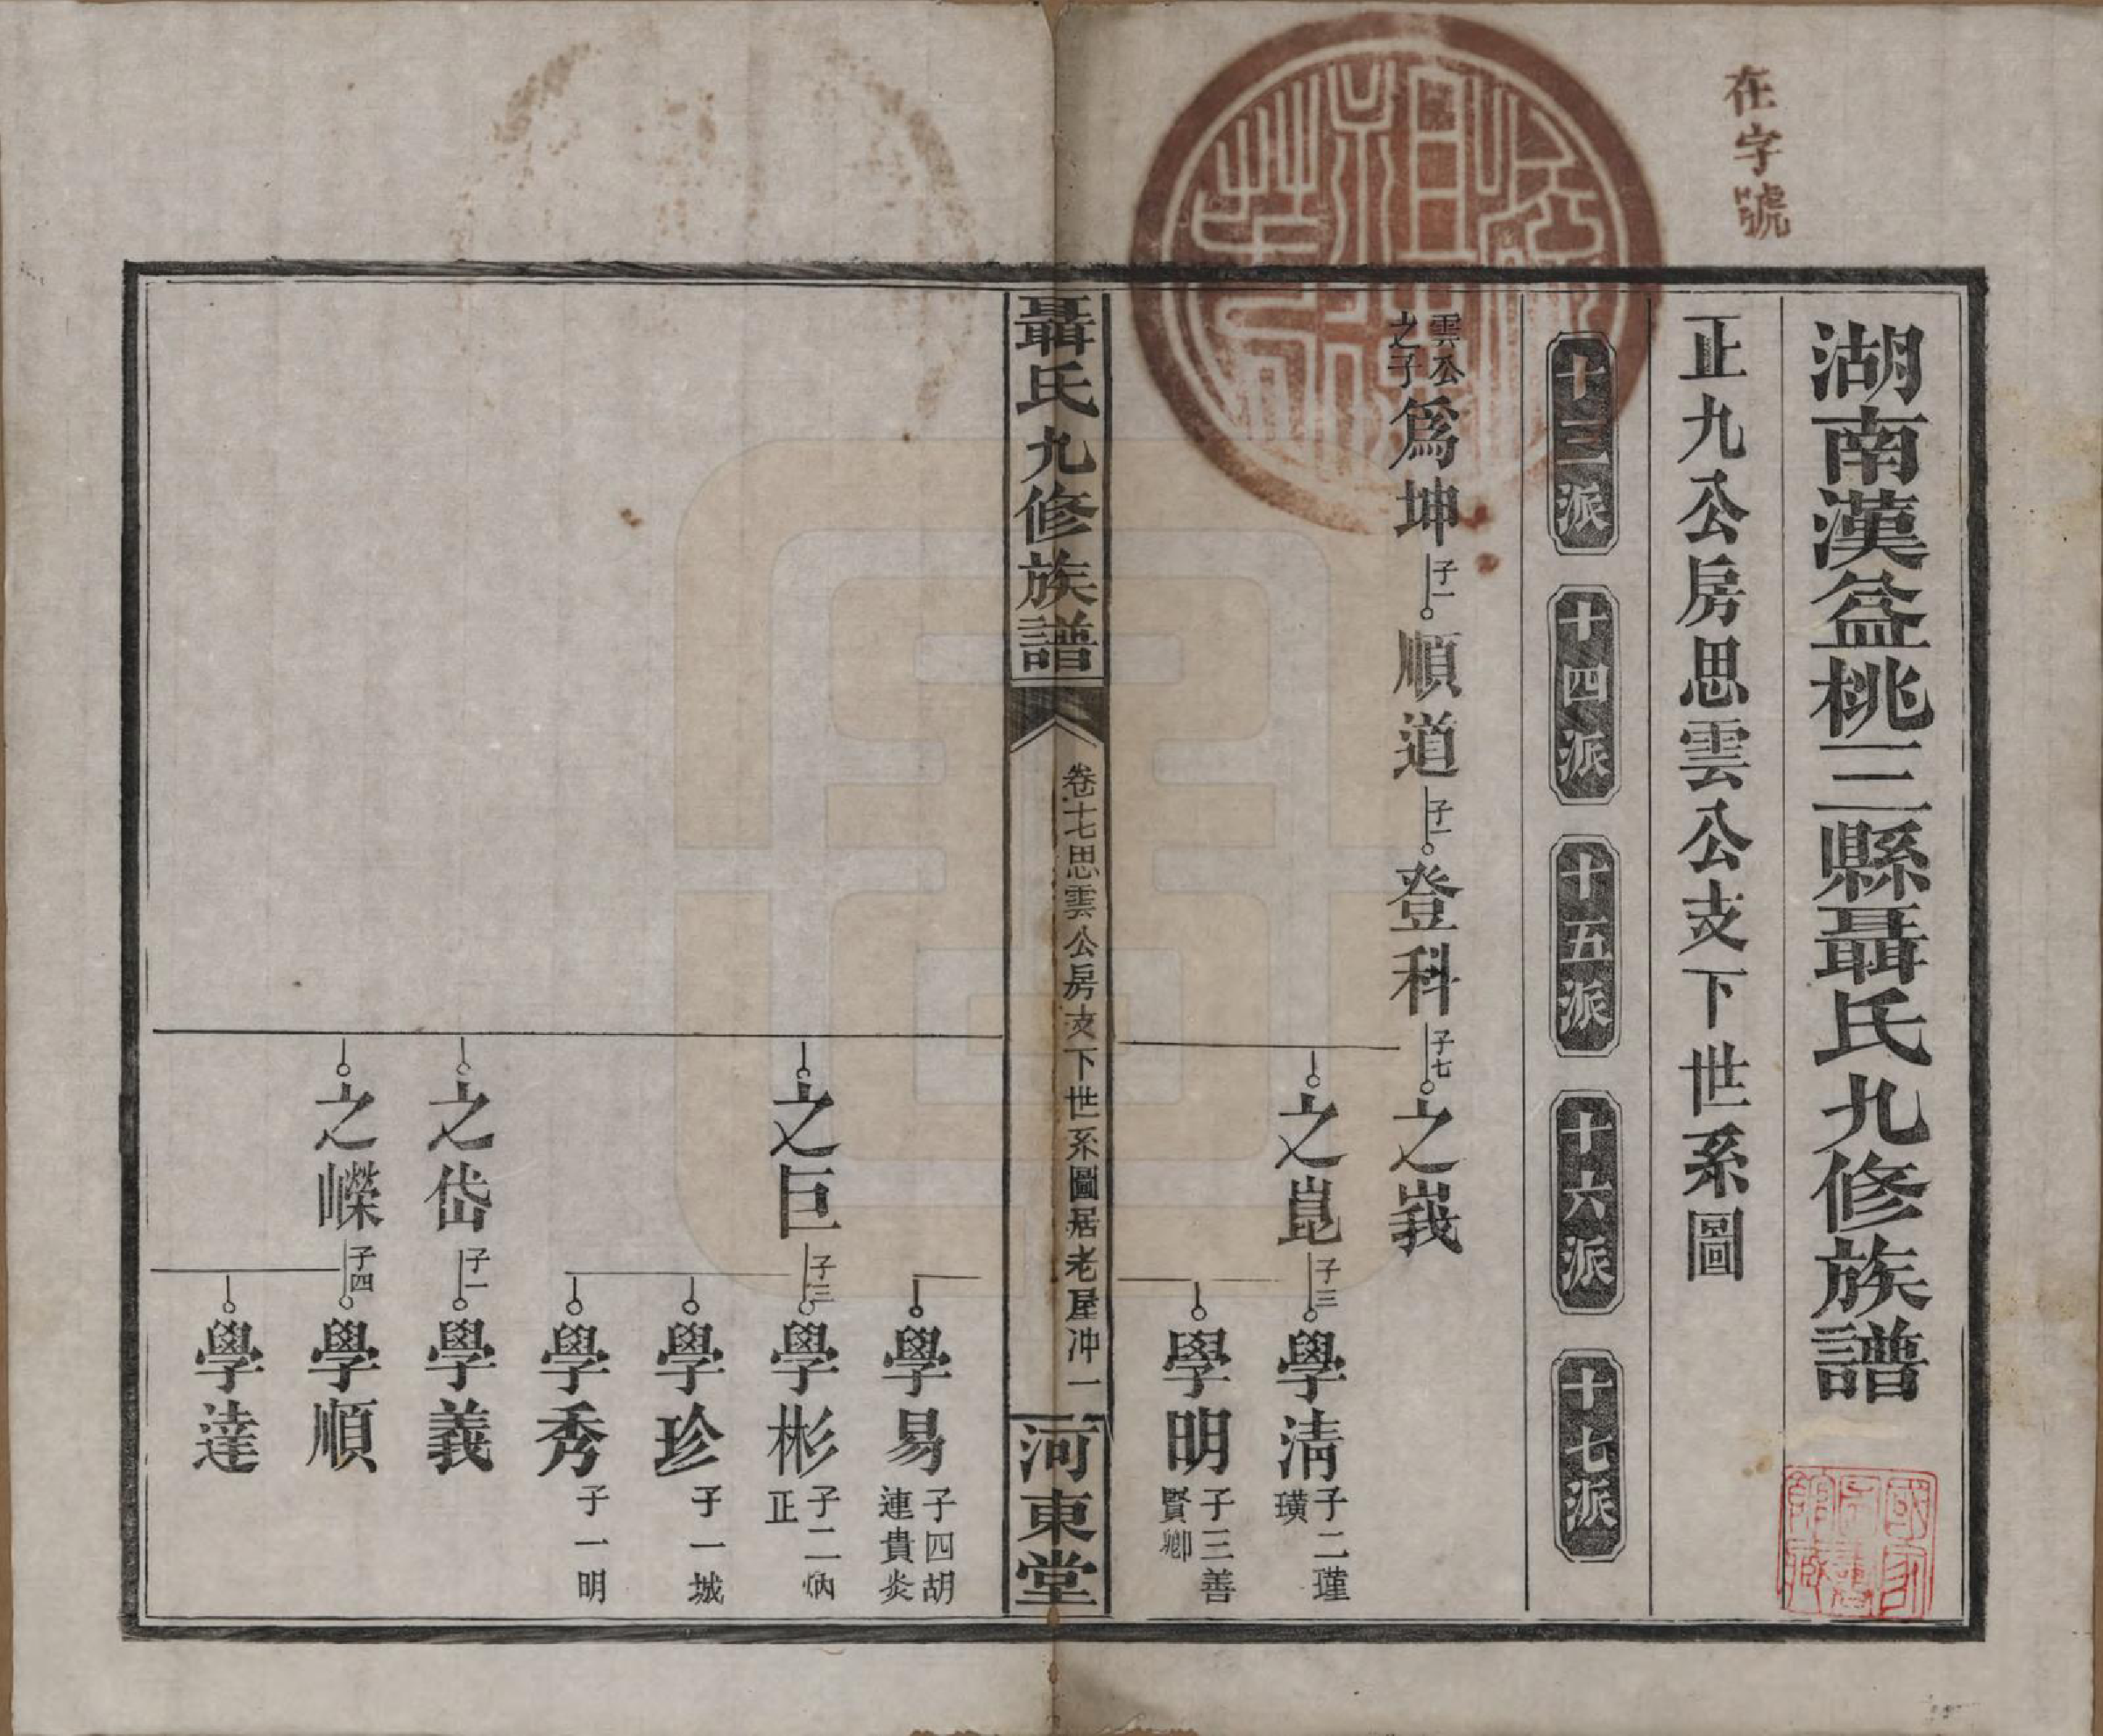 在字號
湖南漢益桃三縣聶氏九修族譜
正九公房思雲公支下世系圖
十三派 十四派 十五派 十六派 十七派
雲公之子 爲坤 子一 順道 子一 登科 子七 之峩
之崑 子三 學清 子二瑾璜
學明 子三善賢卿
聶氏九修族譜 卷十七思雲公房支下世系圖居老屋冲 一 河東堂
學易 子四胡連貴炎
之巨 子三 學彬 子二炳正
學珍 子一城
學秀 子一明
之岱 子一 學義
之嶸 子四 學順
學達